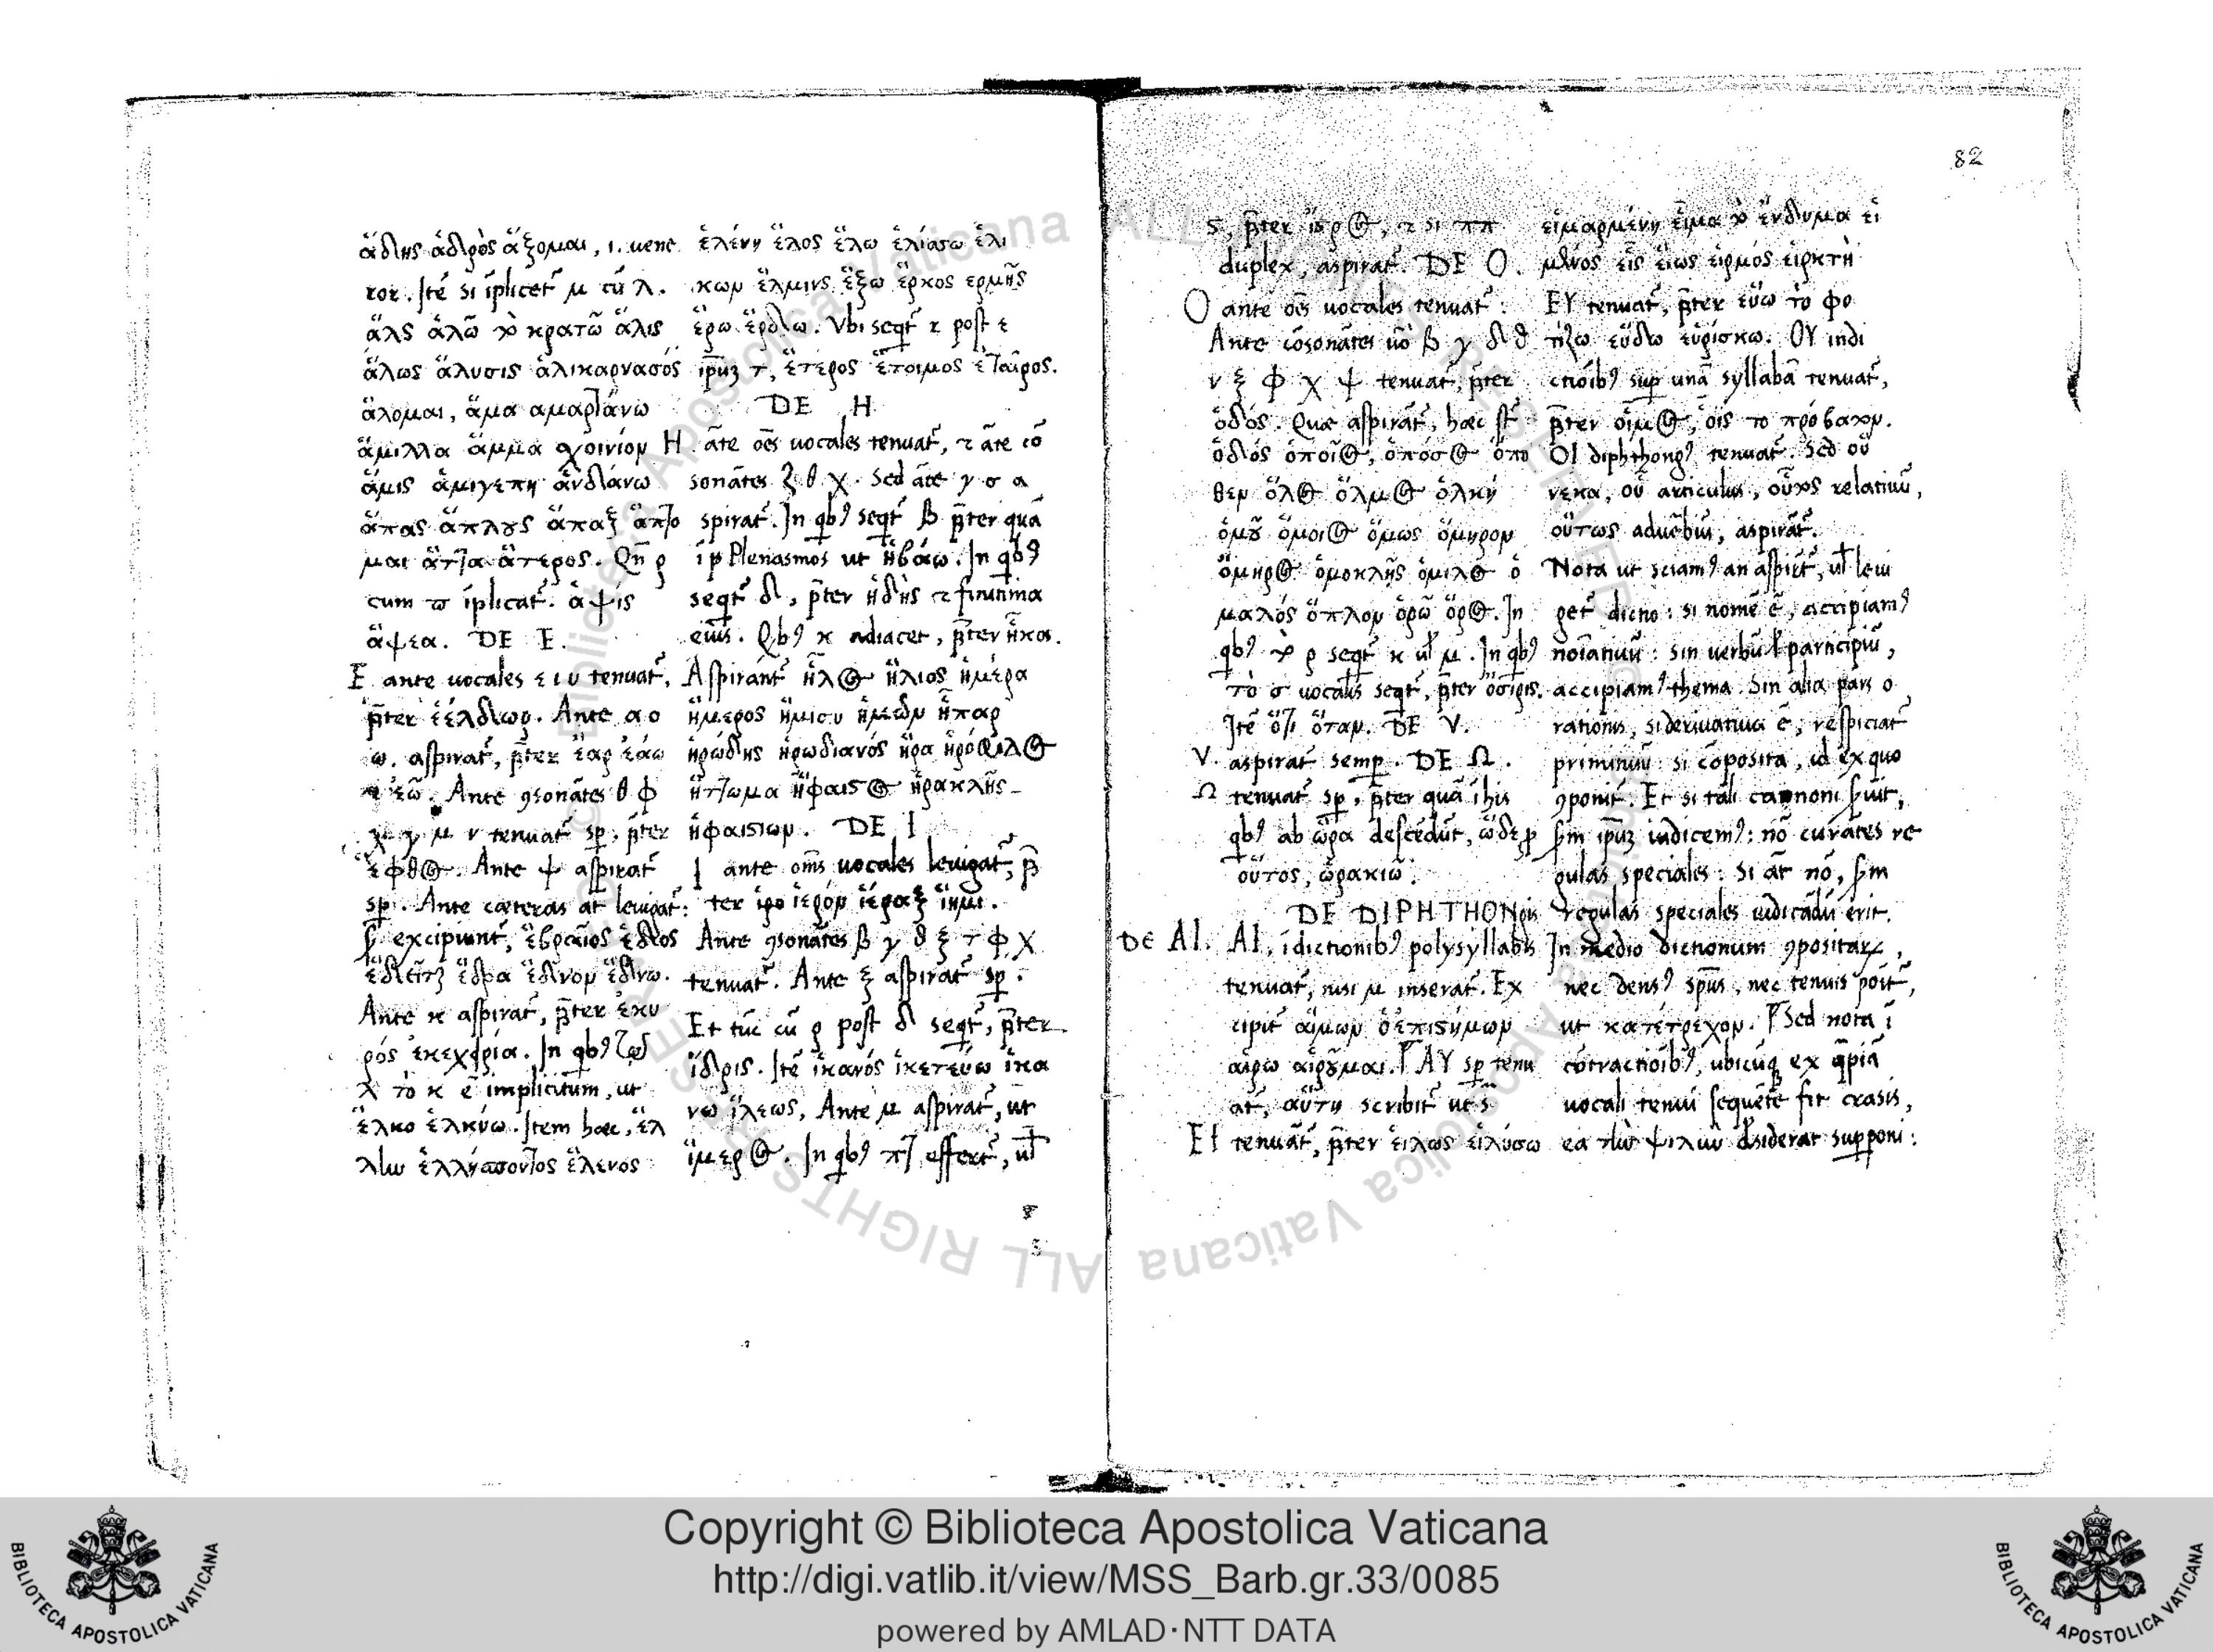 ἅδης ἁδρὸς ἅζομαι, .i. uene
ror. Ité si īplicet μ cū λ.
ἅλς ἁλῶ τὸ κρατῶ ἅλις
ἅλως ἅλυσις ἁλικαρνασός
ἅλομαι, ἅμα αμαρτάνω
ἅμιλλα ἅμμα σχοινίον
ἅμις ἁνδάνω
ἅπας ἅπλους ἅπαξ ἅπτο
μαι ἅττα ἅτερος. Qñ ρ
cum π īplicat. ἁψίς
ἅψεα. DE E.
E ante uocales ε ι υ tenuat,
p̄ter ἑέλδωρ. Ante α ο
ω. aspirat, p̄ter ἔαρ ἐάω
ἐῶ. Ante ꝯsonātes θ φ
χ γ μ ν tenuat sp. p̄ter
ἑφθος. Ante ψ aspirat
sp. Ante cæteras at leuigat:
excipiunt, ἑβραῖος ἕδος
ἕδρα ἕδνον ἕδνω.
Ante κ aspirat, p̄ter ἐκυ
ρός ἐκεχειρία. In qbꝰ
λ τὸ κ ē implicitum, ut
ἕλκο ἑλκύω. Item hæc, ἕλ
λην ἑλλήσποντος ἕλενος
ἑλένη ἕλος ἕλω ἑλίσσω ἑλι
κων ἕλμινς ἕξω ἕρκος ερμῆς
ἕρω ἕρδω. Vbi seqt̄ r post ε
ἕτερος ἕτοιμος ἑταῖρος.
DE H
H. āte oēs uocales tenuat, & āte cō
sonātes ζ θ χ. Sed āte γ σ a
spirat. In qbꝰ seqt̄ β p̄ter quā
ī Plenasmos ut ἡβάω. In qbꝰ
seqt̄ δ, p̄ter ἡδὴς & fininima
eius. Qbꝰ κ adiacet, p̄ter ἧκα.
Aspirant ἧλος ἥλιος ἡμέρα
ἥμερος ἥμισυ ἡμεῶν ἧπαρ
ἡρώδης ἡρωδιανός ἥρα ἡρόφιλος
ἥττωμα ἥφαιστος ἡρακλῆς
ἡφαιστίων. DE I
I ante om̄s uocales leuigat, p̄
ter ἱερόν ἱέραξ ἵημι.
Ante ꝯsonātes β γ θ ξ τ φ χ
tenuat. Ante ξ aspirat sp.
Et tūc cū ρ post δ seqt̄, p̄ter
ἴδρις. Ité ἱκανός ἱκετεύω ἱκα
νω ἵλεως, Ante μ aspirat, ut
ἵμερος. In qbꝰ πτ effert, ul
82
ς, p̄ter ἴσρος, & si ππ
duplex, aspirat. DE O.
O ante oēs uocales tenuat:
Ante cōsonātes uō β γ δ θ
ν ξ φ χ ψ tenuat, p̄ter
ὁδός. Quæ aspirat, hæc st̄
ὁδός ὁποῖος, ὁπόσος ὁπο
θεν ὅλος ὅλμος ὁλκή
ὁμοῦ ὅμοιος ὅμως ὅμηρον
ὅμηρος ὁμοκλῆς ὅμιλος ὁ
μαλός ὅπλον ὁρῶ ὅρος. In
qbꝰ τὸ ρ seqt̄ κ ul μ. In qbꝰ
τὸ σ uocalis seqt̄, p̄ter ὄσιρις.
Ité ὅτι ὅταν. DE V.
V. aspirat semp. DE Ω.
Ω tenuat sp, p̄ter quā ī his
qbꝰ ab ὥρα descēdūt, ὥδε p
οὗτος, ὡρακιῶ.
DE DIPHTHONgis
DE AI. AI, ī dictionibꝰ polysyllabis
tenuat, nisi μ inserat. Ex
cipit αἵμων ὁ ἐπιστήμων
αἱρω αἱροῦμαι. AY sp tenu
at, αὕτη scribit ut s̄
EI tenuāt, p̄ter εἵλως εἱλύσω
εἱμαρμένη εἷμα τὸ ἔνδυμα εἱ
μένος εἷς εἵως εἱρμός εἱρκτὴ
EY tenuat, p̄ter εὕω τὸ φο
τίζω εὕδω εὑρίσκω. OY indi
ctiōibꝰ sup unā syllabā tenuat,
p̄ter οἷμος, οἷς το πρόβατον.
OI diphthongꝰ tenuat. Sed οὗ
νεκα, οὗ articulus, οὗτος relatiuū,
οὕτως aduerbiū, aspirāt.
Nota ut sciamꝰ an aspiret, ul leui
get dictio: si nomē ē, accipiamꝰ
noīatiuū: sin uerbū ul participiū,
accipiamꝰ thema. Sin alia pars o
rationis, si deriuatiua ē, respiciat
primitiuū: si cōposita, id ex quo
ꝯponit. Et si tali canoni suit,
sm̄ ipuz iudicemꝰ: nō curātes re
gulas speciales: si at nō, sm̄
regulas speciales iudicādū erit.
In medio dictionum ꝯpositarꝝ,
nec densꝰ spūs, nec tenuis poit,
ut κατέτρεχον. Sed nota ī
cōtractiōibꝰ, ubicūq ex qpiā
uocali tenui sequēte fit crasis,
ea τὴν ψιλὴν dsiderat supponi:
Copyright © Biblioteca Apostolica Vaticana
http://digi.vatlib.it/view/MSS_Barb.gr.33/0085
powered by AMLAD·NTT DATA
BIBLIOTECA APOSTOLICA VATICANA
BIBLIOTECA APOSTOLICA VATICANA